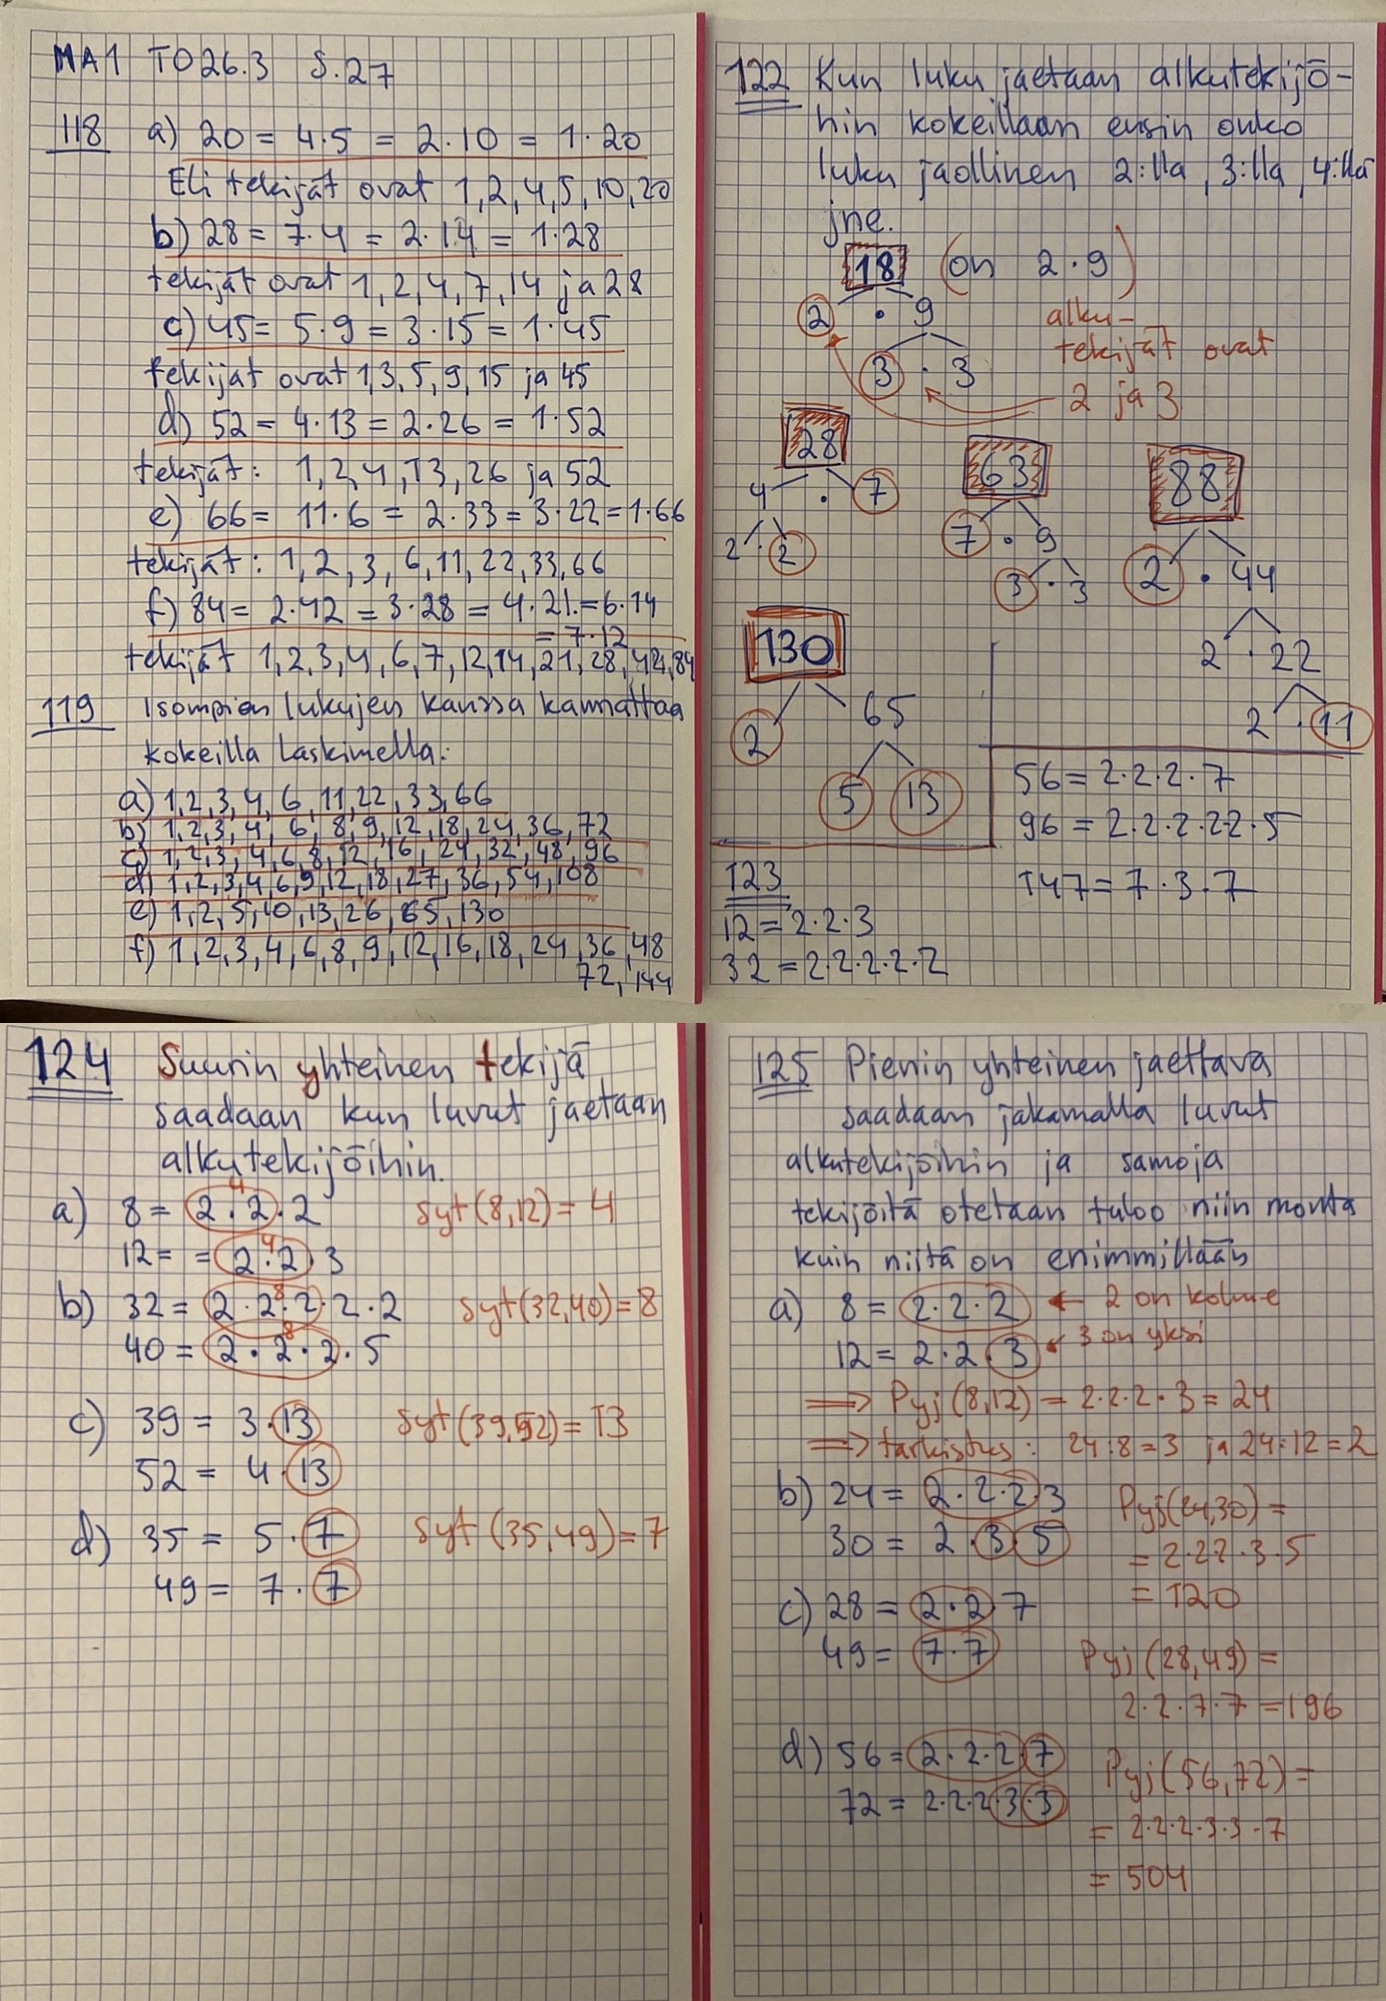 MA1 TO26.3 S.27
118 a) 20 = 4·5 = 2·10 = 1·20
Eli tekijät ovat 1,2,4,5,10,20
b) 28 = 7·4 = 2·14 = 1·28
tekijät ovat 1,2,4,7,14 ja 28
c) 45 = 5·9 = 3·15 = 1·45
tekijät ovat 1,3,5,9,15 ja 45
d) 52 = 4·13 = 2·26 = 1·52
tekijät: 1,2,4,13,26 ja 52
e) 66 = 11·6 = 2·33 = 3·22 = 1·66
tekijät: 1,2,3,6,11,22,33,66
f) 84 = 2·42 = 3·28 = 4·21. = 6·14
= 7·12
tekijät 1,2,3,4,6,7,12,14,21,28,42,84
119 Isompien lukujen kanssa kannattaa
kokeilla laskimella:
a) 1,2,3,4,6,11,22,33,66
b) 1,2,3,4,6,8,9,12,18,24,36,72
c) 1,2,3,4,6,8,12,16,24,32,48,96
d) 1,2,3,4,6,9,12,18,27,36,54,108
e) 1,2,5,10,13,26,65,130
f) 1,2,3,4,6,8,9,12,16,18,24,36,48
72,144
122 Kun luku jaetaan alkutekijö-
hin kokeillaan ensin onko
luku jaollinen 2:lla, 3:lla, 4:llä
jne.
18 (on 2·9)
2 · 9
alku-
tekijät ovat
3 · 3
2 ja 3
28
4 · 7
2 · 2
63
7 · 9
3 · 3
88
2 · 44
2 · 22
2 · 11
130
2 65
5 13
56 = 2·2·2·7
96 = 2·2·2·2·2·5
147 = 7·3·7
123
12 = 2·2·3
32 = 2·2·2·2·2
124 Suurin yhteinen tekijä
saadaan kun luvut jaetaan
alkutekijöihin.
4
a) 8 = 2·2·2 syt(8,12) = 4
4
12 = = 2·2·3
8
b) 32 = 2·2·2·2·2 syt(32,40) = 8
8
40 = 2·2·2·5
c) 39 = 3·13 syt(39,52) = 13
52 = 4·13
d) 35 = 5·7 syt(35,49) = 7
49 = 7·7
125 Pienin yhteinen jaettava
saadaan jakamalla luvut
alkutekijöihin ja samoja
tekijöitä otetaan tuloo niin monta
kuin niitä on enimmillään
a) 8 = 2·2·2 ← 2 on kolme
12 = 2·2·3 ← 3 on yksi
⟹ Pyj(8,12) = 2·2·2·3 = 24
⟹ tarkistus: 24:8=3 ja 24:12=2
b) 24 = 2·2·2·3 Pyj(24,30) =
30 = 2·3·5 = 2·2·2·3·5
= 120
c) 28 = 2·2·7
49 = 7·7 Pyj(28,49) =
2·2·7·7 = 196
d) 56 = 2·2·2·7 Pyj(56,72) =
72 = 2·2·2·3·3
= 2·2·2·3·3·7
= 504